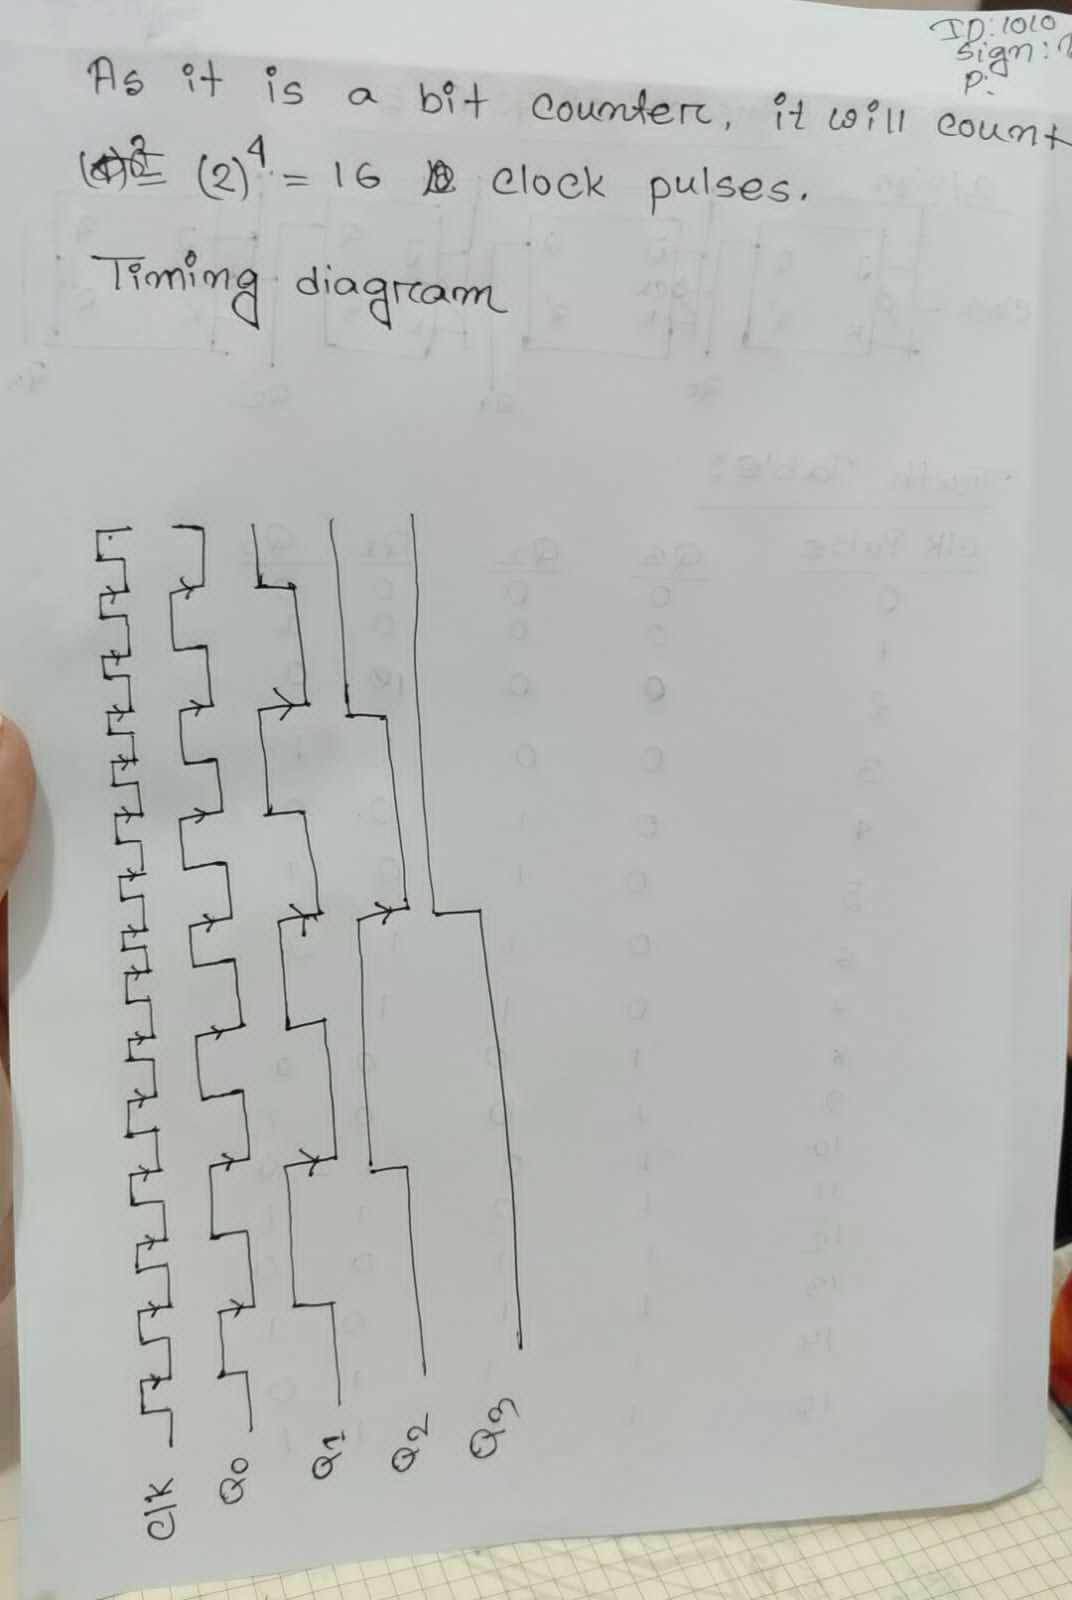 ID: 1010
Sign:
P.
As it is a bit counter, it will count
(2)⁴ = 16 clock pulses.
Timing diagram
Clk
Q0
Q1
Q2
Q3